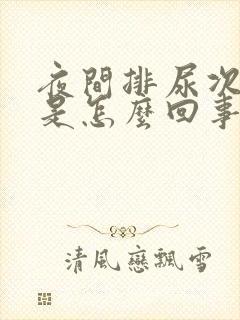 夜間排尿次
是怎麼回事
清風戀飄雪